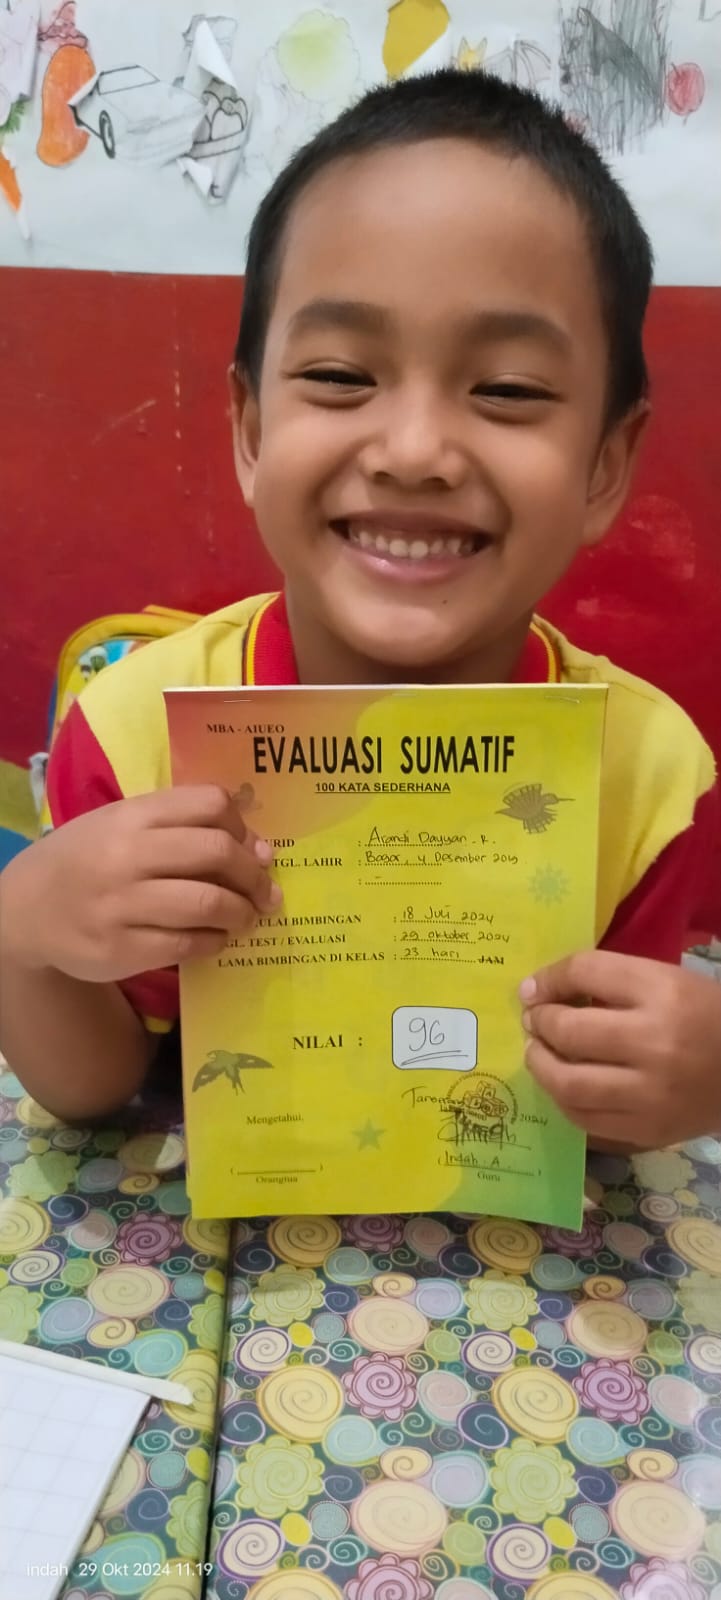 MBA - AIUEO
EVALUASI SUMATIF
100 KATA SEDERHANA
URID : Arandi Dayyan . R.
TGL. LAHIR : Bogor, 4 Desember 2019
: -
ULAI BIMBINGAN : 18 Juli 2024
GL. TEST / EVALUASI : 29 oktober 2024
LAMA BIMBINGAN DI KELAS : 23 hari JAM
NILAI : 96
2024
Mengetahui,
( ) ( Indah . A )
Orangtua Guru
indah 29 Okt 2024 11.19